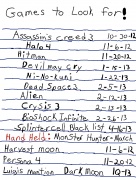 Games to Look for!
Assassin's creed 3 10-30-12
Halo 4 11-6-12
Hitman 11-20-12
Devil may cry 1-15-13
Ni-No-Kuni 1-22-13
Dead Space 3 2-5-13
Alien 2-12-13
Crysis 3 2-19-13
Bioshock Infinite 2-26-13
Splinter cell Back list 4-16-13
Hand Held: Monster Hunter - March
Harvest moon 11-6-12
Persona 4 11-20-12
Luigi's mansion Dark Moon